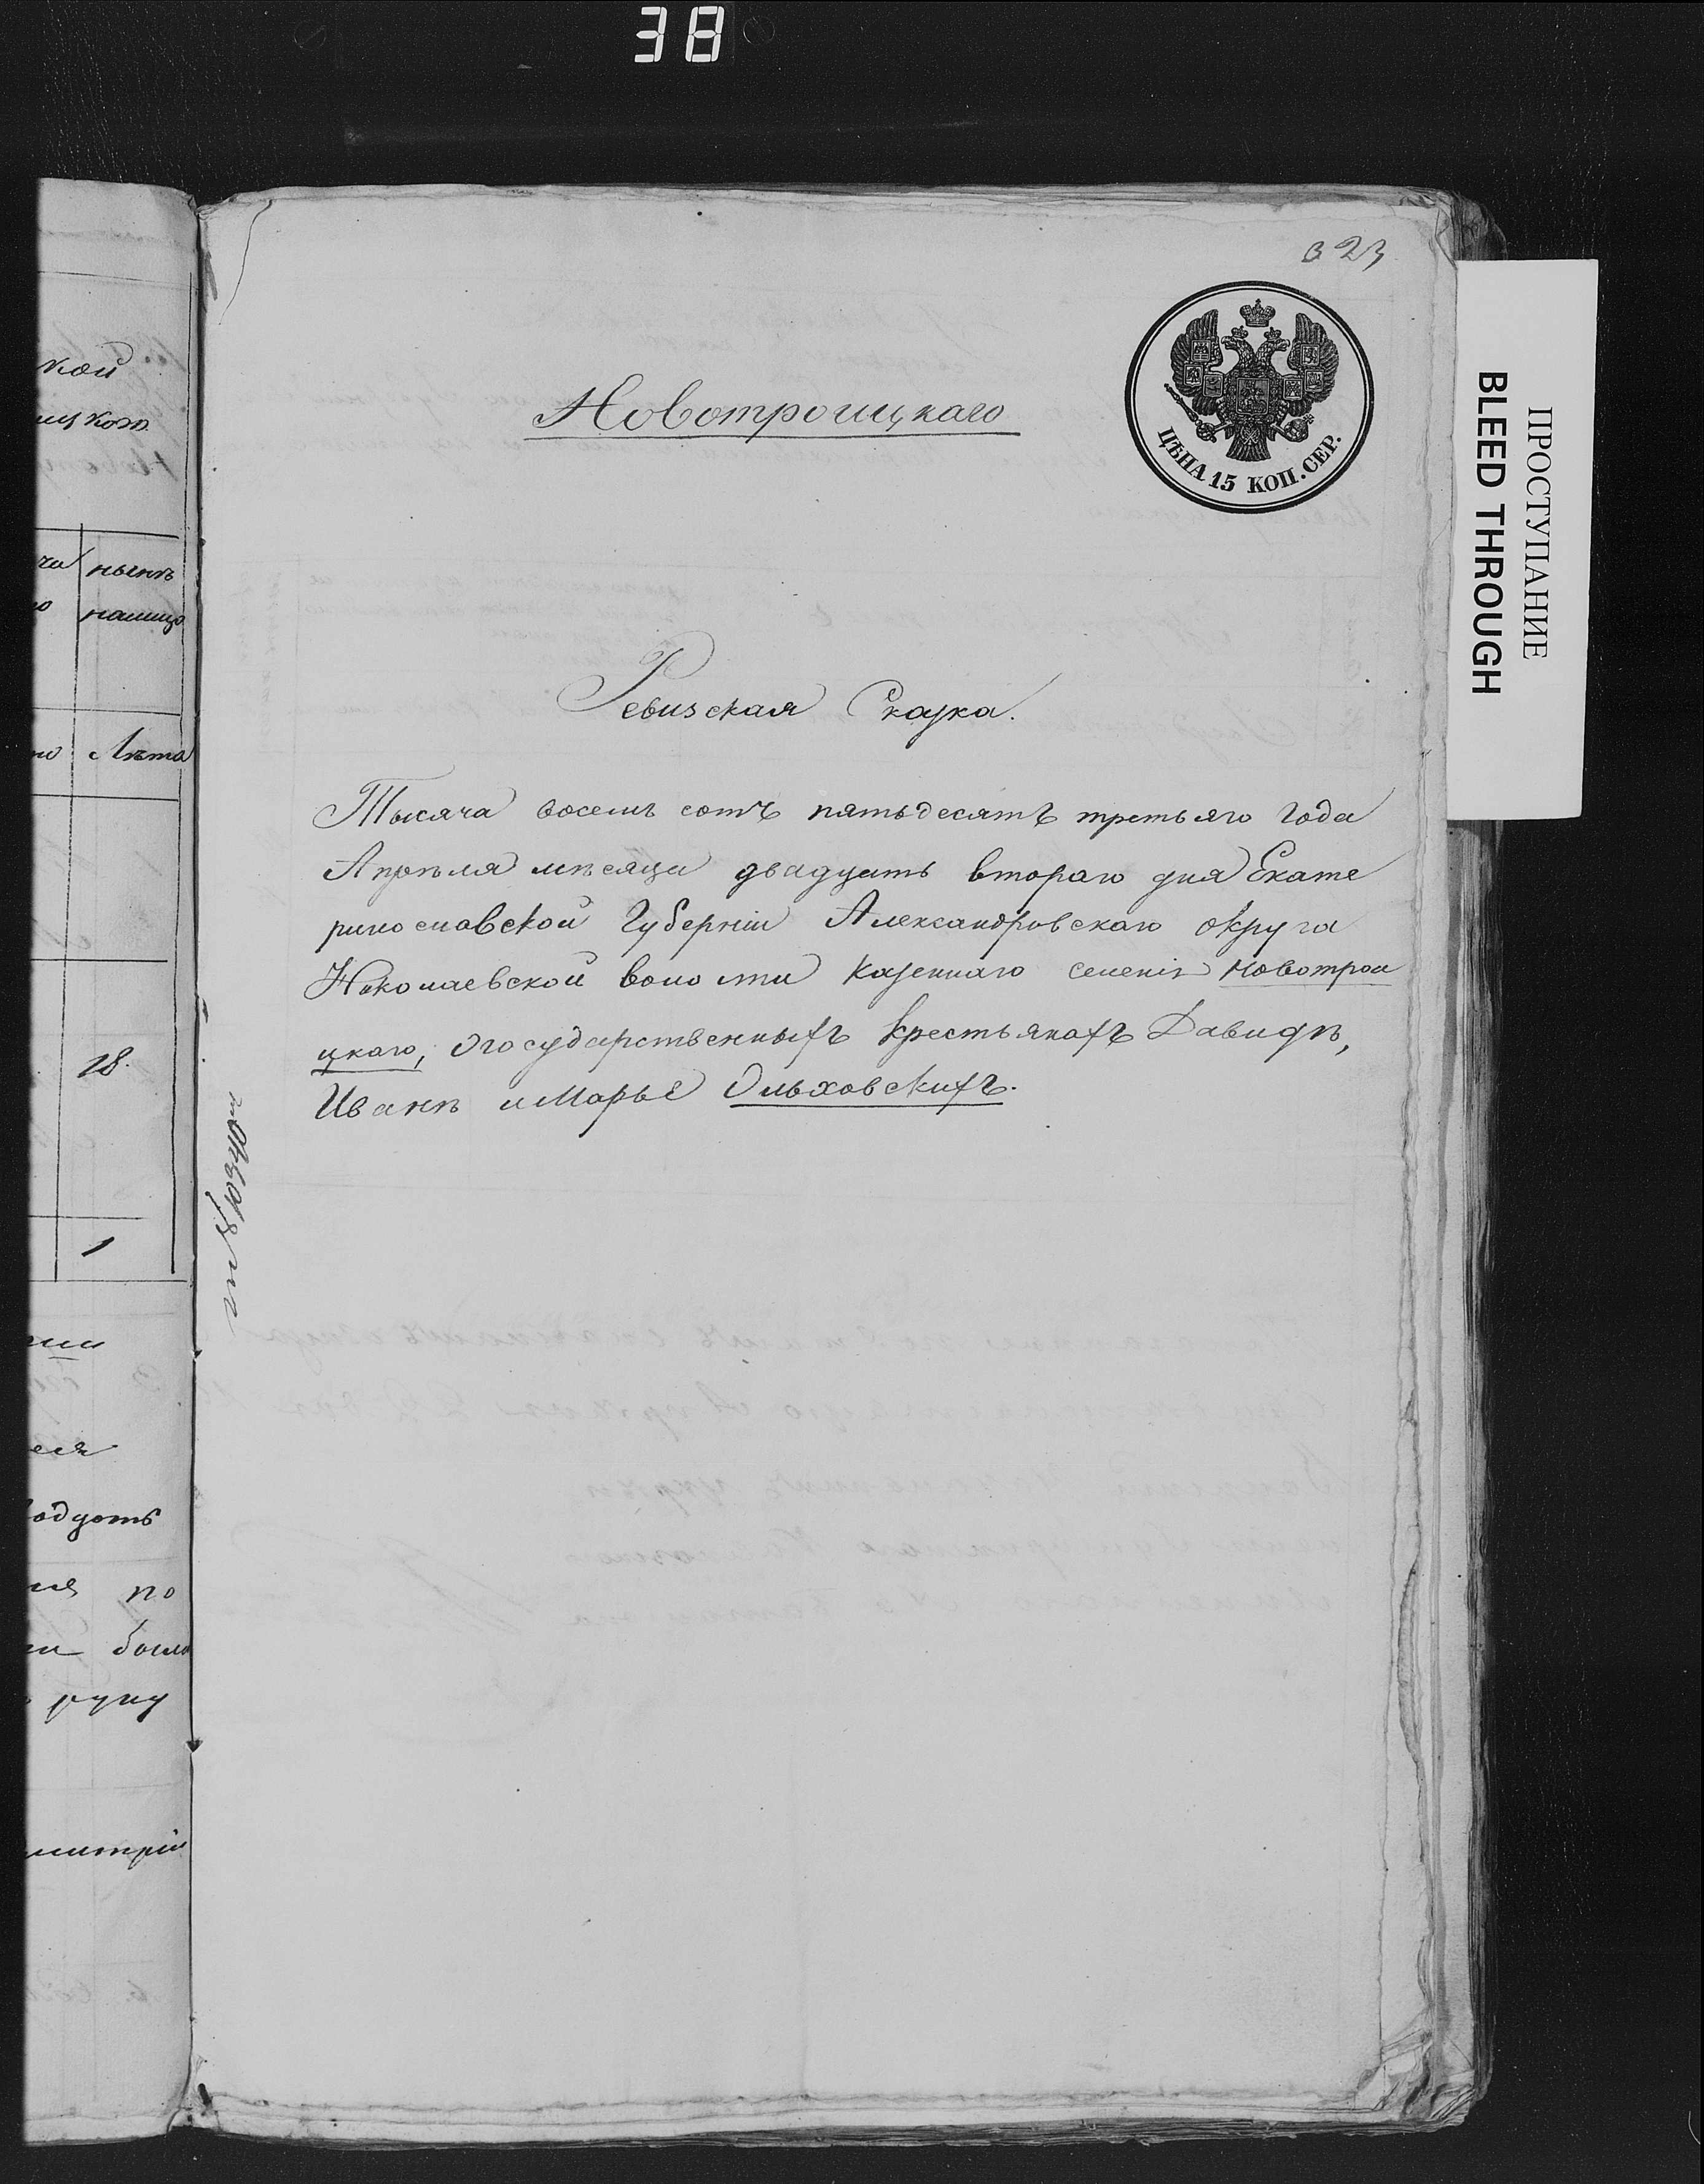 38
323
Новотроицкаго
ЦѢНА 15 КОП. СЕР.
ПРОСТУПАНИЕ
BLEED THROUGH
Ревизская Сказка.
Тысяча восемь сотъ пятьдесятъ третьяго года
Апрѣля мѣсяца двадцать втораго дня Екате
ринославской Губерніи Александровскаго округа
Николаевской волости Казеннаго селенія Новотрои
цкаго, Огосударственныхъ Крестьянахъ Давидѣ,
Иванѣ иМарье Ольховскихъ.
кой
цкого
нынѣ
налицо
Лѣта
18.
1
еся
одуть
по
было
руку
митрій